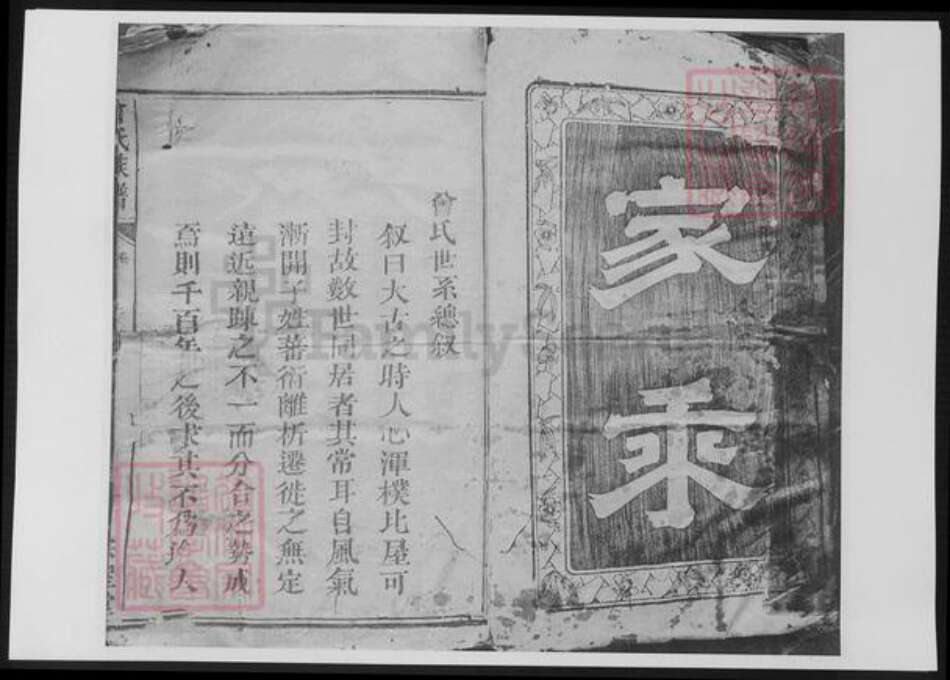 家乘
曾氏世系總叙
叙曰太古之時人心渾樸比屋可
封故數世同居者其常耳自風氣
漸開子姓蕃衍離析遷徙之無定
遠近親踈之不一而分合之勢成
焉則千百年之後求其不爲途人
曾氏族譜
FamilySearch